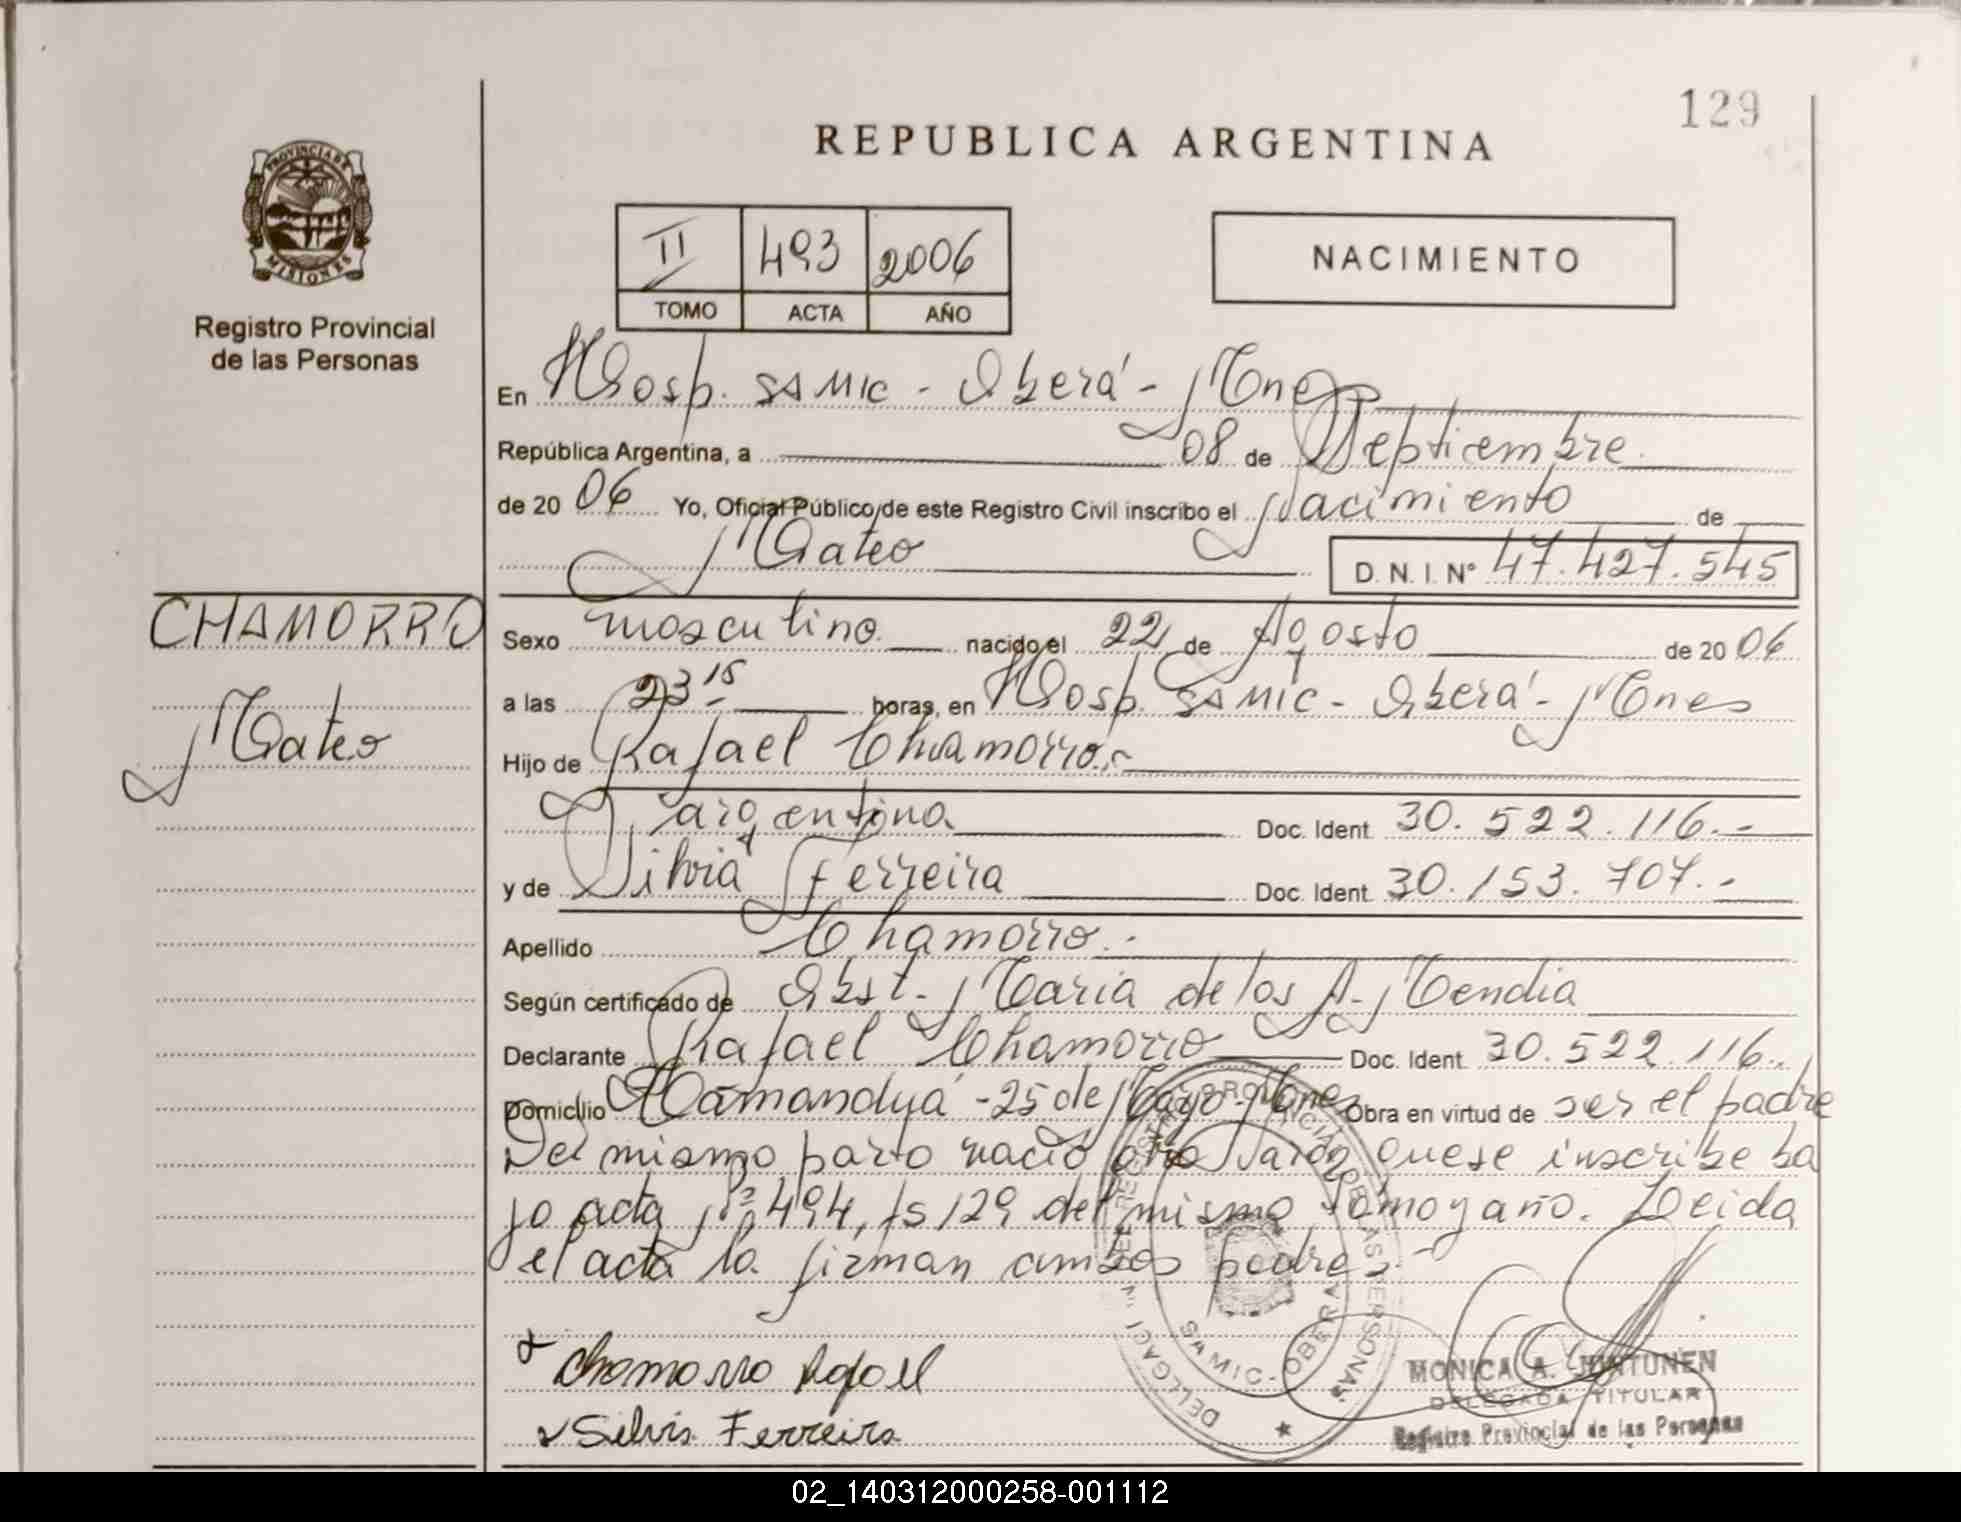 129
REPUBLICA ARGENTINA
PROVINCIA DE
MISIONES
Registro Provincial
de las Personas
II 493 2006
TOMO ACTA AÑO
NACIMIENTO
En Hosp. SAMIC - Oberá - Mnes
República Argentina, a 08 de Septiembre
de 20 06 Yo, Oficial Público de este Registro Civil inscribo el Nacimiento de
Mateo D. N. I. Nº 47.427.545
CHAMORRO
Mateo
Sexo masculino nacido el 22 de Agosto de 20 06
a las 23 15 horas, en Hosp. SAMIC - Oberá - Mnes
Hijo de Rafael Chamorro.-
argentina Doc. Ident. 30.522.116.-
y de Silvia Ferreira Doc. Ident. 30.153.707.-
Apellido Chamorro.-
Según certificado de Obst. María de los A. Mendia
Declarante Rafael Chamorro Doc. Ident. 30.522.116.-
Domicilio Mamanduá - 25 de Mayo - Mnes Obra en virtud de ser el padre
Del mismo parto nació otro Varón que se inscribe ba
jo acta Nº 494, fs 129 del mismo tomo y año. Leida
el acta la firman ambos padres.-
Chamorro Rafael
Silvia Ferreira
SAMIC - OBERA
MONICA A.
DELEGADA TITULAR
Registro Provincial de las Personas
02_140312000258-001112